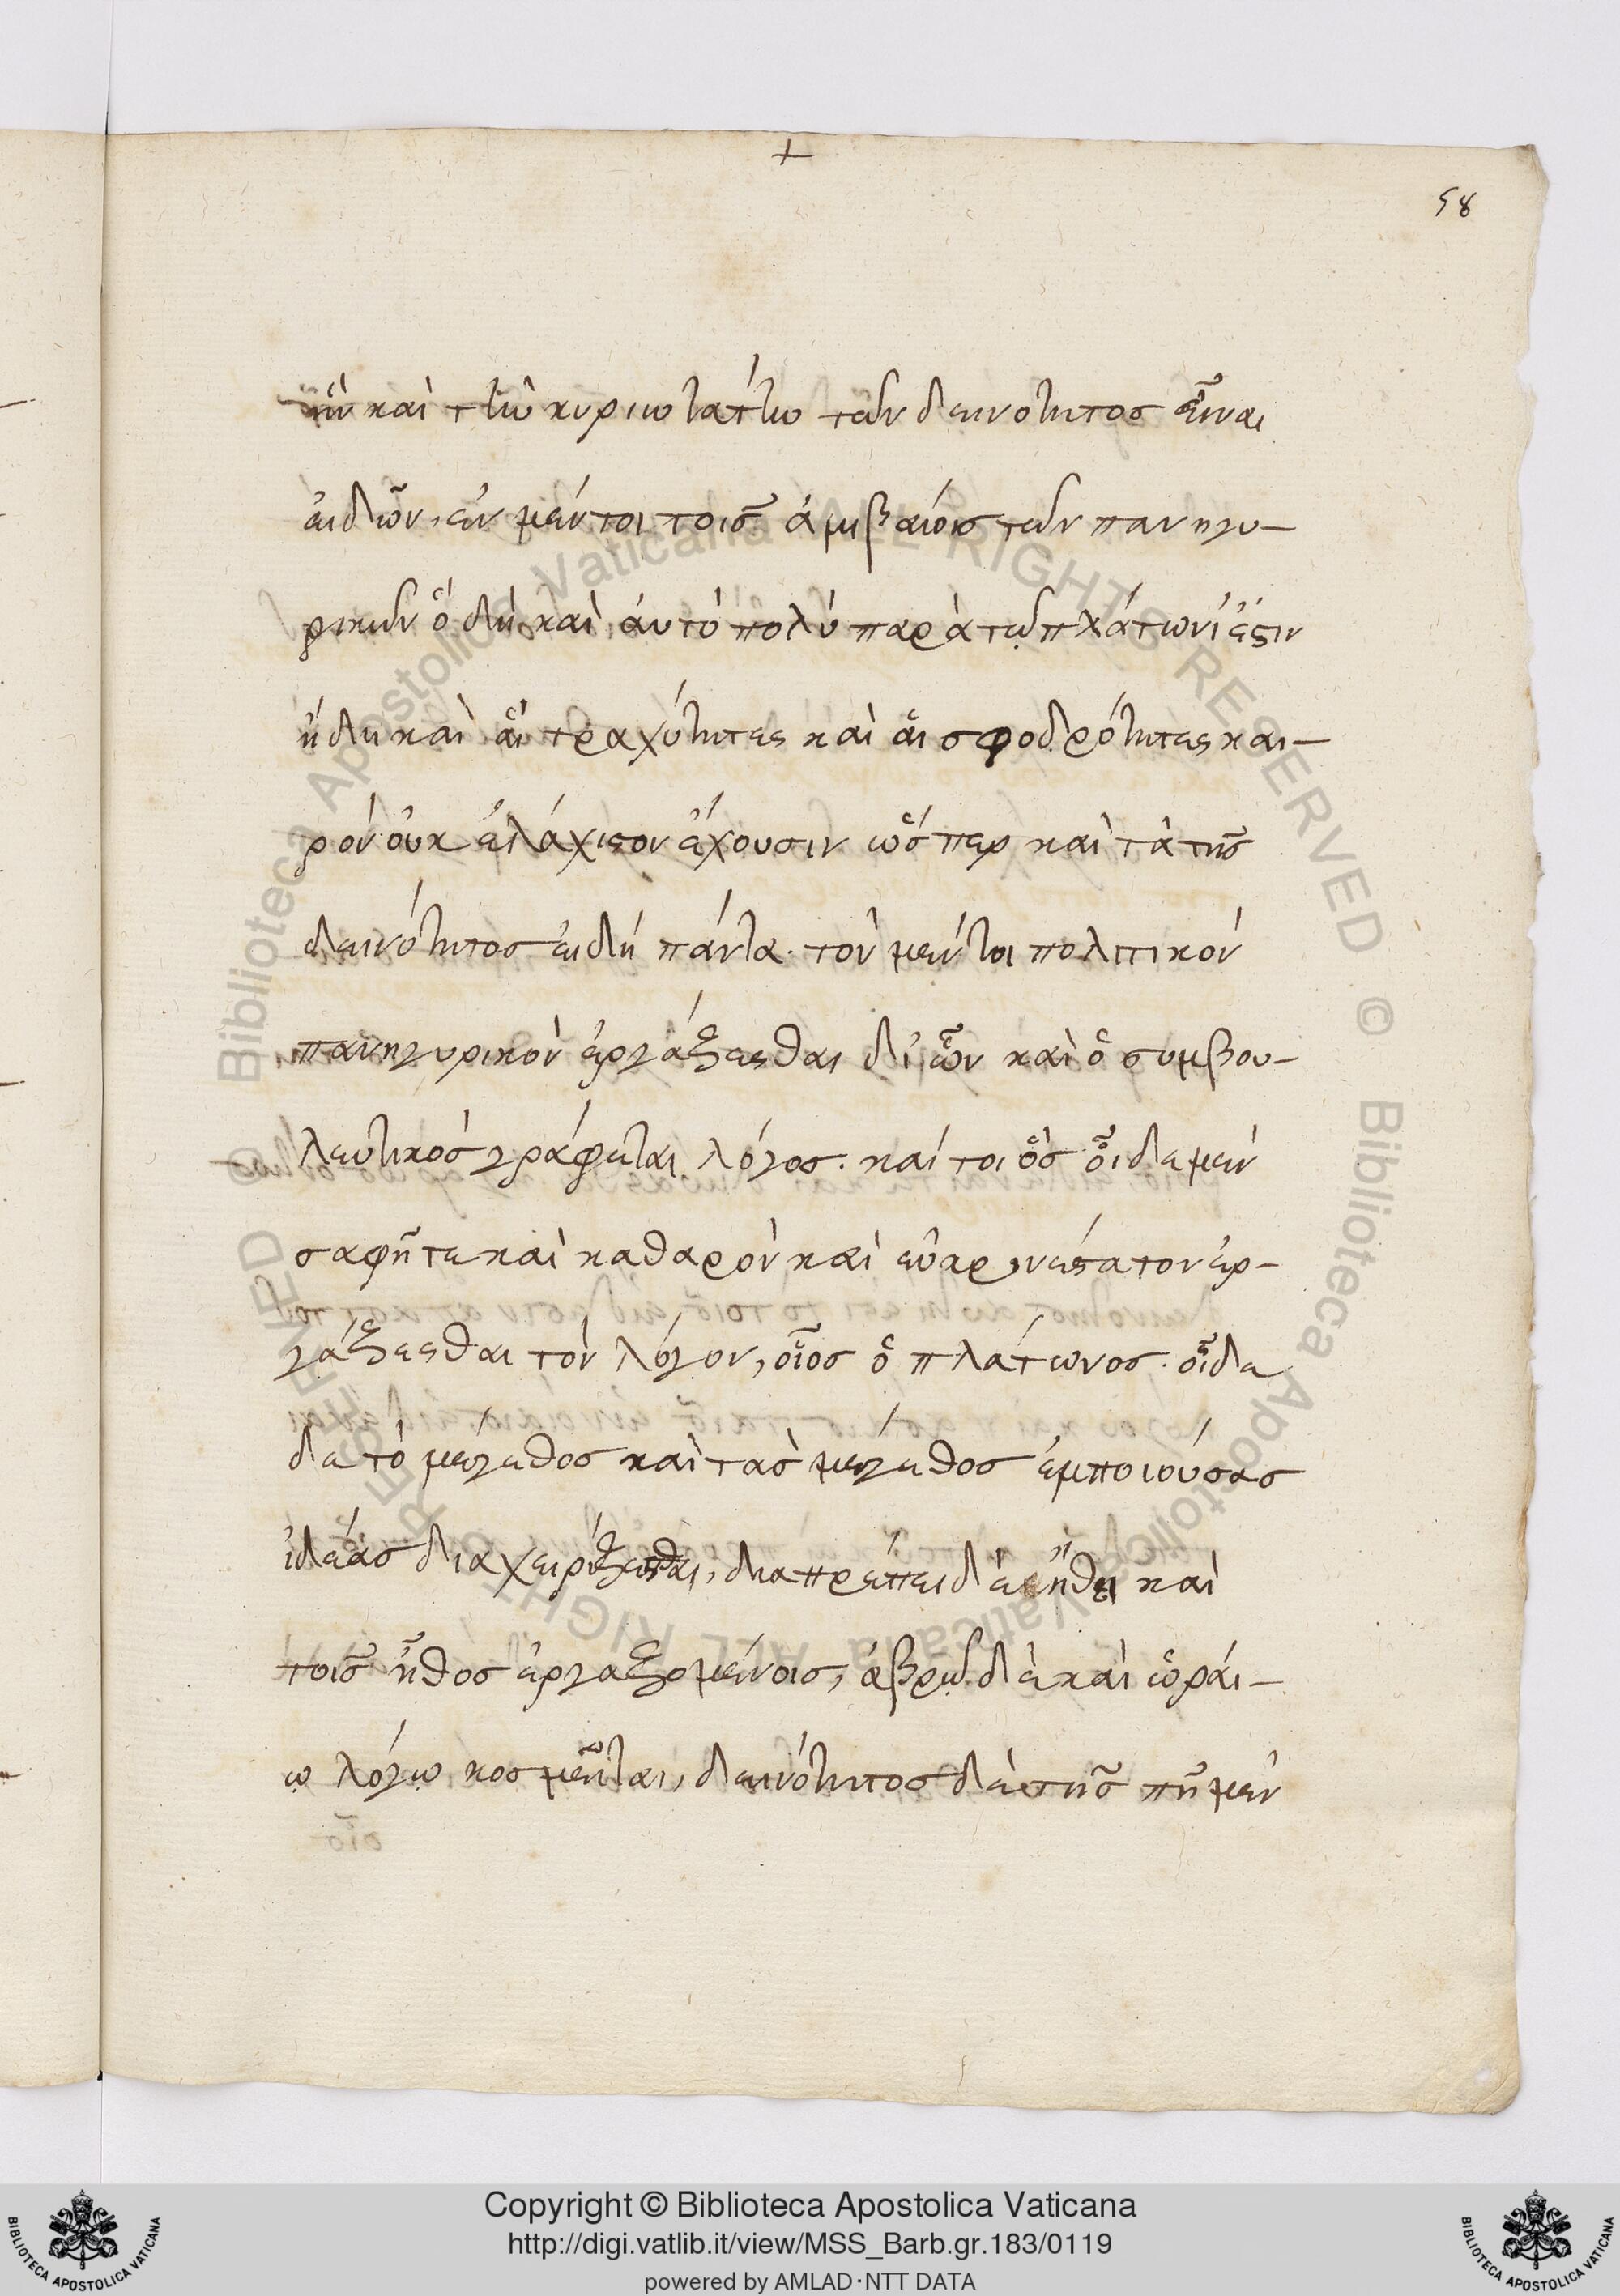 +
58
ἣν καὶ τὴν κυριωτάτην τῶν δεινότητος εἶναι
εἰδῶν, ἐν μέντοι τοῖς ἀμιβαίοις τῶν πανηγυ-
ρικῶν ὃ δὴ καὶ αὐτὸ πολύ παρὰ τῷ πλάτωνί ἐστιν
ἤδη καὶ αἱ τραχύτητες καὶ αἱ σφοδρότητες και-
ρὸν οὐκ ἐλάχιστον ἔχουσιν ὥσπερ καὶ τὰ τῆς
δεινότητος εἴδη πάντα. τὸν μέντοι πολιτικὸν
πανηγυρικὸν ἐργάζεσθαι δι' ὧν καὶ ὁ συμβου-
λευτικὸς γράφεται λόγος. καί τοι ὃς οἶδε μὲν
σαφῆ τε καὶ καθαρὸν καὶ εὐκρινέστατον ἐρ-
γάζεσθαι τὸν λόγον, οἷος ὁ πλάτωνος. οἶδε
δὲ τὸ μέγεθος καὶ τὰς μέγεθος ἐμποιούσας
ἰδέας διαχειρίζεσθαι, διαπρέπει δὲ ἤθει καὶ
τοῖς ἦθος ἐργαζομένοις, ἁβρῷ δὲ καὶ ὡραί-
ῳ λόγῳ κοσμεῖται, δεινότητος δὲ τῆς πῆ μὲν
Copyright © Biblioteca Apostolica Vaticana
http://digi.vatlib.it/view/MSS_Barb.gr.183/0119
powered by AMLAD·NTT DATA
BIBLIOTECA APOSTOLICA VATICANA
BIBLIOTECA APOSTOLICA VATICANA
© Biblioteca Apostolica Vaticana ALL RIGHTS RESERVED
© Biblioteca Apostolica Vaticana ALL RIGHTS RESERVED